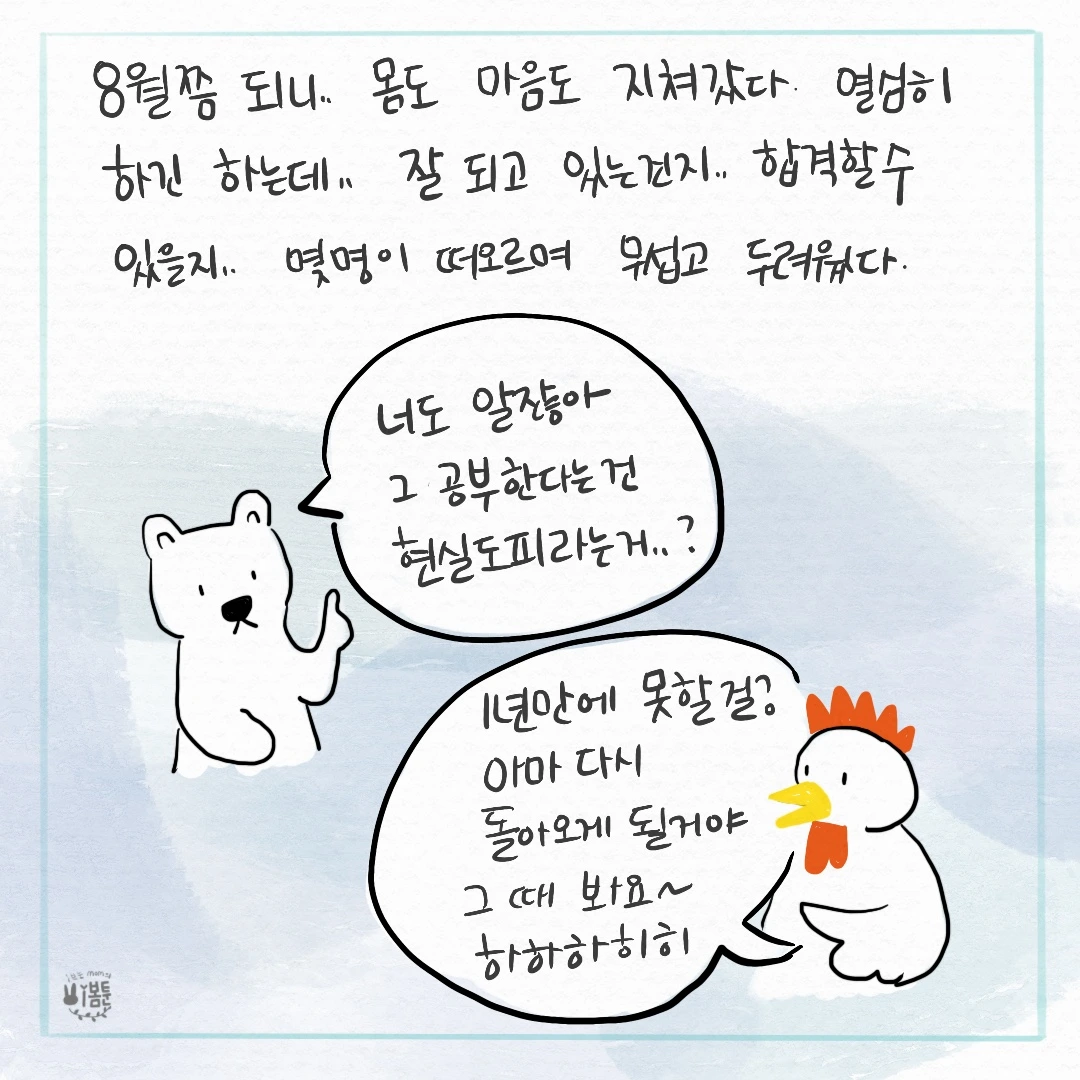 8월쯤 되니.. 몸도 마음도 지쳐갔다. 열심히
하긴 하는데.. 잘 되고 있는건지.. 합격할수
있을지.. 몇명이 떠오르며 무섭고 두려웠다.
너도 알잖아
그 공부한다는건
현실도피라는거..?
1년만에 못할걸?
아마 다시
돌아오게 될거야
그 때 봐요~
하하하히히
봄툰